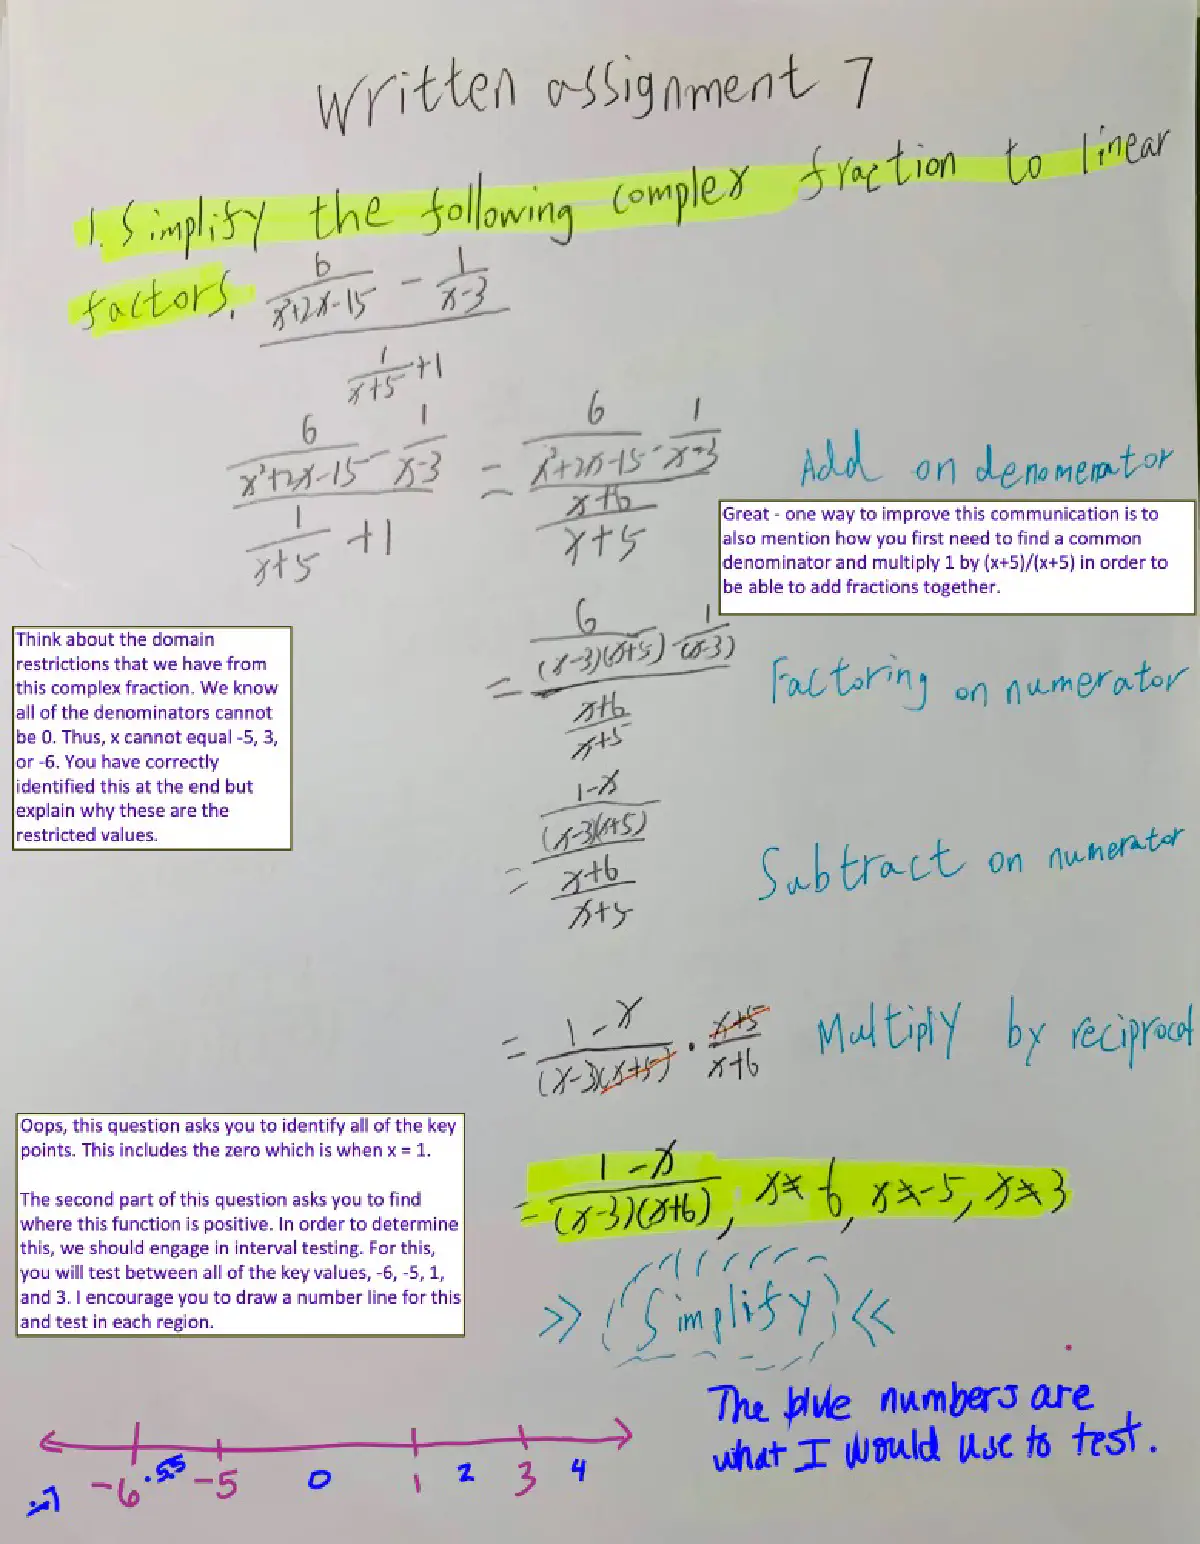 Written assignment 7
1. Simplify the following complex fraction to linear
factors.
6/(x²+2x-15) - 1/(x-3)
1/(x+5) + 1
6/(x²+2x-15) - 1/(x-3) = 6/(x²+2x-15) - 1/(x-3)
1/(x+5) + 1
(x+6)/(x+5)
Add on denomerator
Great - one way to improve this communication is to
also mention how you first need to find a common
denominator and multiply 1 by (x+5)/(x+5) in order to
be able to add fractions together.
= 6/((x-3)(x+5)) - 1/(x-3)
(x+6)/(x+5)
Factoring on numerator
Think about the domain
restrictions that we have from
this complex fraction. We know
all of the denominators cannot
be 0. Thus, x cannot equal -5, 3,
or -6. You have correctly
identified this at the end but
explain why these are the
restricted values.
= (1-x)/((x-3)(x+5))
(x+6)/(x+5)
Subtract on numerator
= (1-x)/((x-3)(x+5)) · (x+5)/(x+6)
Multiply by reciprocal
Oops, this question asks you to identify all of the key
points. This includes the zero which is when x = 1.
The second part of this question asks you to find
where this function is positive. In order to determine
this, we should engage in interval testing. For this,
you will test between all of the key values, -6, -5, 1,
and 3. I encourage you to draw a number line for this
and test in each region.
= (1-x)/((x-3)(x+6)), x≠-6, x≠-5, x≠3
>> Simplify <<
The blue numbers are
what I would use to test.
-7 -6 -5.5 -5 0 1 2 3 4